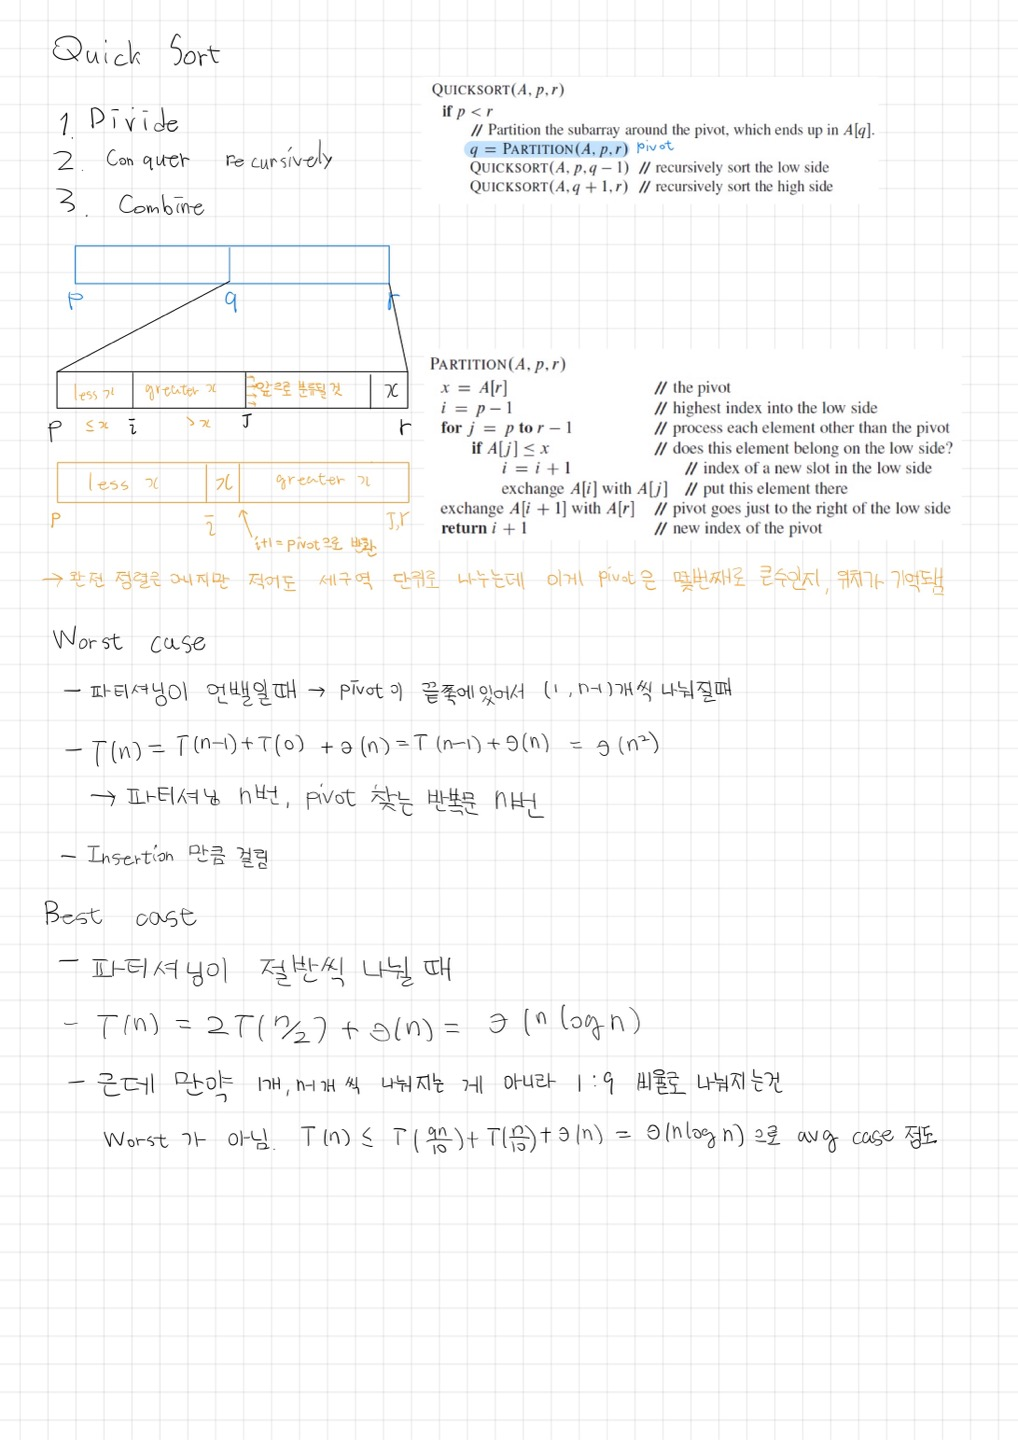 Quick Sort
1. Divide
2. Conquer recursively
3. Combine
QUICKSORT(A, p, r)
if p < r
// Partition the subarray around the pivot, which ends up in A[q].
q = PARTITION(A, p, r) pivot
QUICKSORT(A, p, q − 1) // recursively sort the low side
QUICKSORT(A, q + 1, r) // recursively sort the high side
p q r
less x greater x 앞으로 분류될 것 x
p ≤x i >x J r
less x x greater x
p i J,r
i+1 = pivot으로 반환
PARTITION(A, p, r)
x = A[r] // the pivot
i = p − 1 // highest index into the low side
for j = p to r − 1 // process each element other than the pivot
if A[j] ≤ x // does this element belong on the low side?
i = i + 1 // index of a new slot in the low side
exchange A[i] with A[j] // put this element there
exchange A[i + 1] with A[r] // pivot goes just to the right of the low side
return i + 1 // new index of the pivot
→ 완전 정렬은 적어도 세구역 단위로 나누는데 이게 pivot은 몇번째로 큰수인지, 위치가 기억됨
Worst case
- 파티셔닝이 언밸일때 → pivot이 끝쪽에있어서 (1, n-1)개씩 나눠질때
- T(n) = T(n-1)+T(0) + Θ(n) = T(n-1) + Θ(n) = Θ(n²)
→ 파티셔닝 n번, pivot 찾는 반복문 n번
- Insertion 만큼 걸림
Best case
- 파티셔닝이 절반씩 나뉠 때
- T(n) = 2T(n/2) + Θ(n) = Θ(n log n)
- 근데 만약 1개, n-1개 씩 나눠지는 게 아니라 1:9 비율로 나눠지는건
Worst 가 아님. T(n) ≤ T(9n/10) + T(n/10) + Θ(n) = Θ(n log n) 으로 avg case 정도